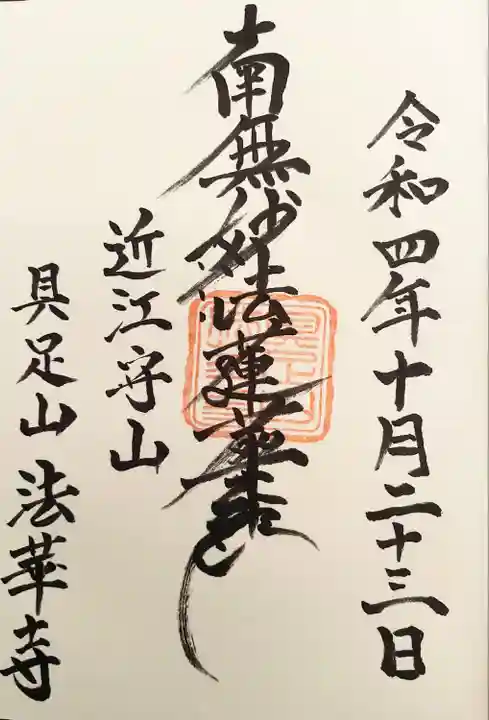 令和四年十月二十三日
南無妙法蓮華経
近江守山
具足山 法華寺